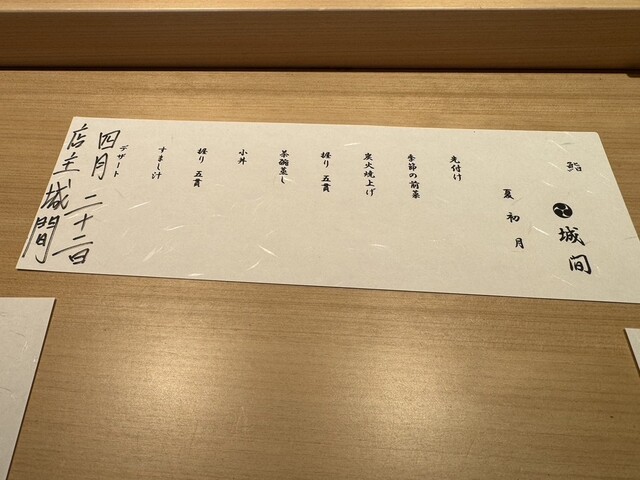 鮨 城間
夏初月
先付け
季節の前菜
炭火焼上げ
握り 五貫
茶碗蒸し
小丼
握り 五貫
すまし汁
デザート
四月二十二日
店主城間